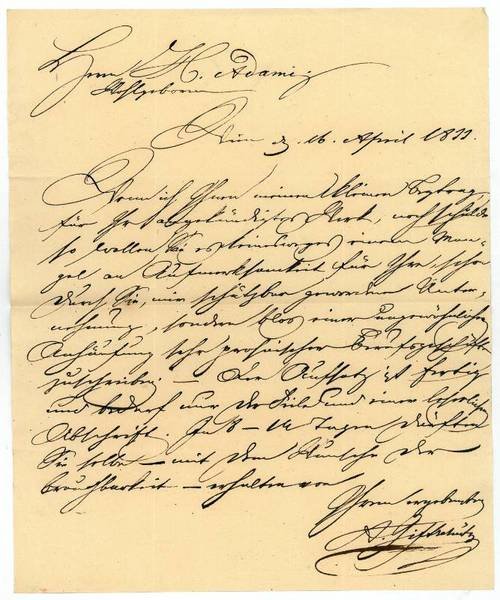 Herrn H. Adami
Wohlgeboren
Wien d. 16. April 18
Wenn ich Ihnen meinen kleinen Beytrag,
für Ihr angekündigtes Werk, noch schulde
so wollen Sie es keineswegs einem Man-
gel an Aufmerksamkeit für Ihre, schon
durch Sie, mir schätzbar gewordene Unter-
nehmung, sondern blos einer ungewöhnlichen
Anhäufung sehr prosaischer Berufsgeschäfte
zuschreiben. — Der Aufsatz ist fertig
und bedarf nur der Feile und einer leserlichen
Abschrift. In 8 – 14 Tagen dürften
Sie selbe — mit dem Wunsche der
Brauchbarkeit — erhalten von
Ihrem ergebensten